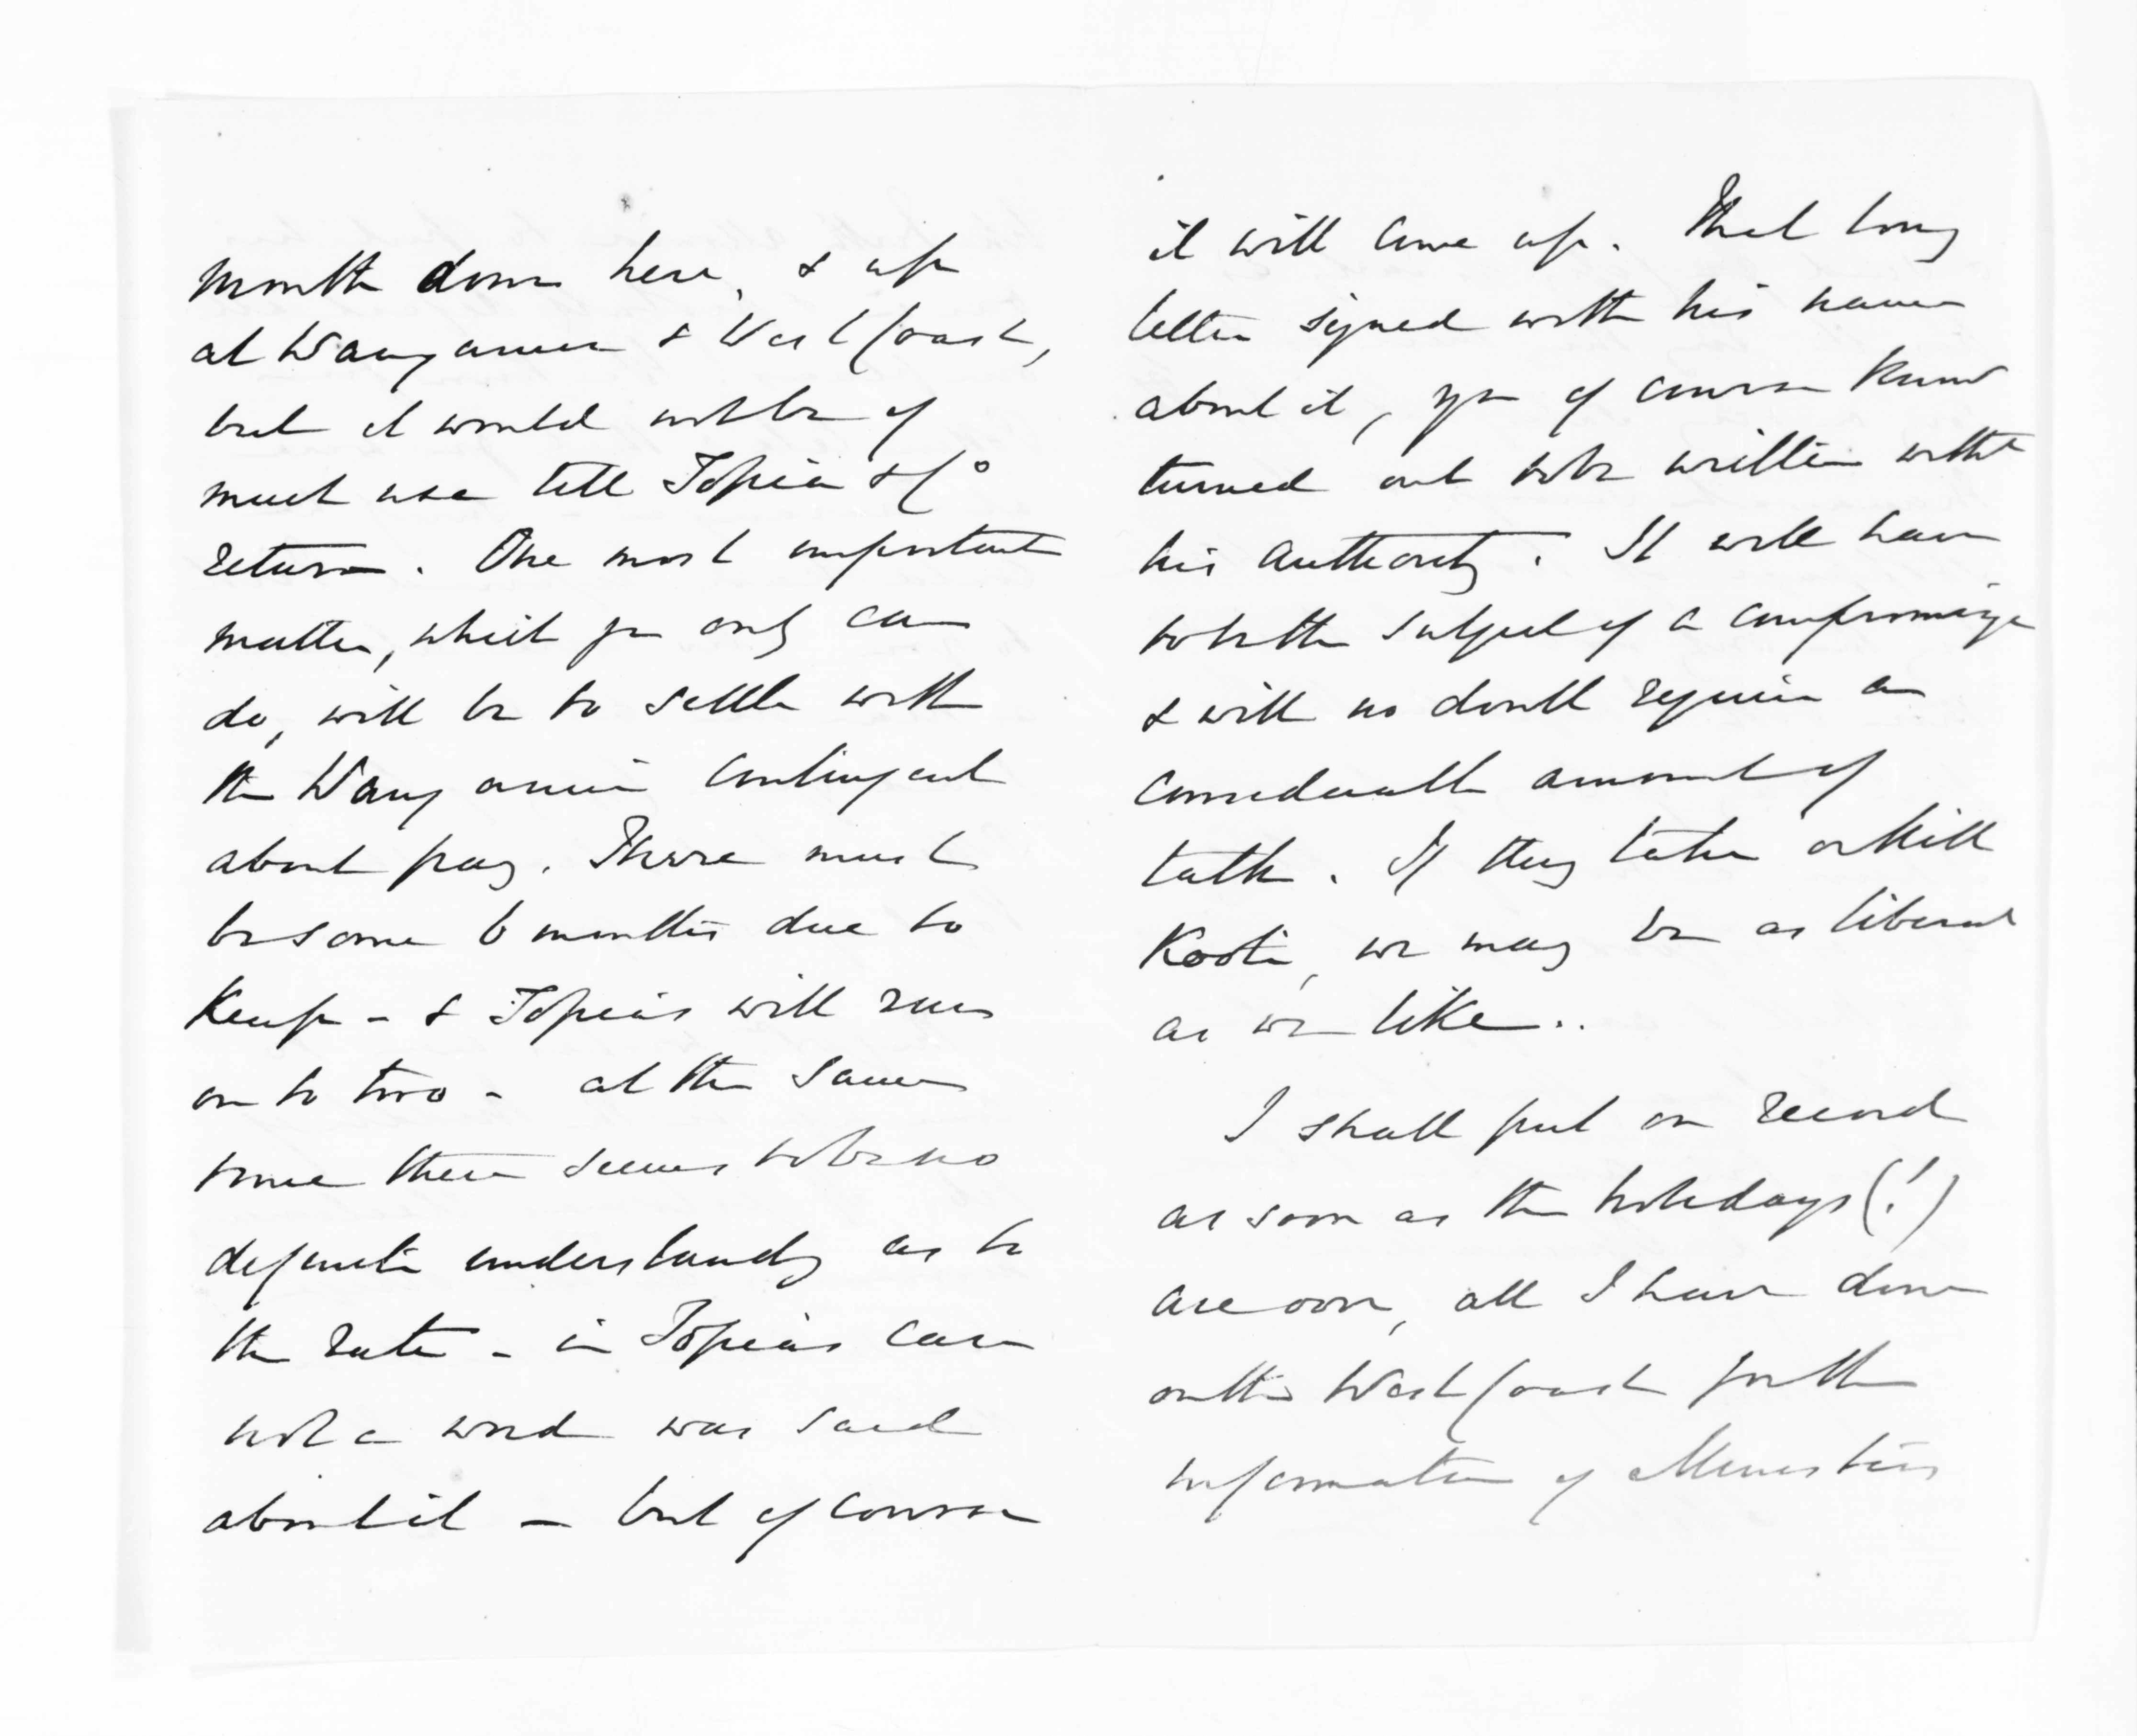 month down here, & up
at Wanganui & West Coast,
but it would not be of
much use till Topia & Co
return. One most important
matter, which you only can
do, will be to settle with
the Wanganui Contingent
about pay. There must
be some 6 months due to
Kemp - & Topia's will run
on to two - at the same
time there seems to be no
definite understanding as to
the rate - in Topia's case
not a word was said
about it - but of course
it will come up. That long
letter signed with his name
about it, you of course know
turned out to be written witht
his authority. It will have
to be the subject of a compromise
& will no doubt require a
considerable amount of
talk. If they take or kill
Kooti, we may be as liberal
as we like..
I shall put on record
as soon as the holidays (!)
are over, all I have done
on the West Coast for the
information of Ministers